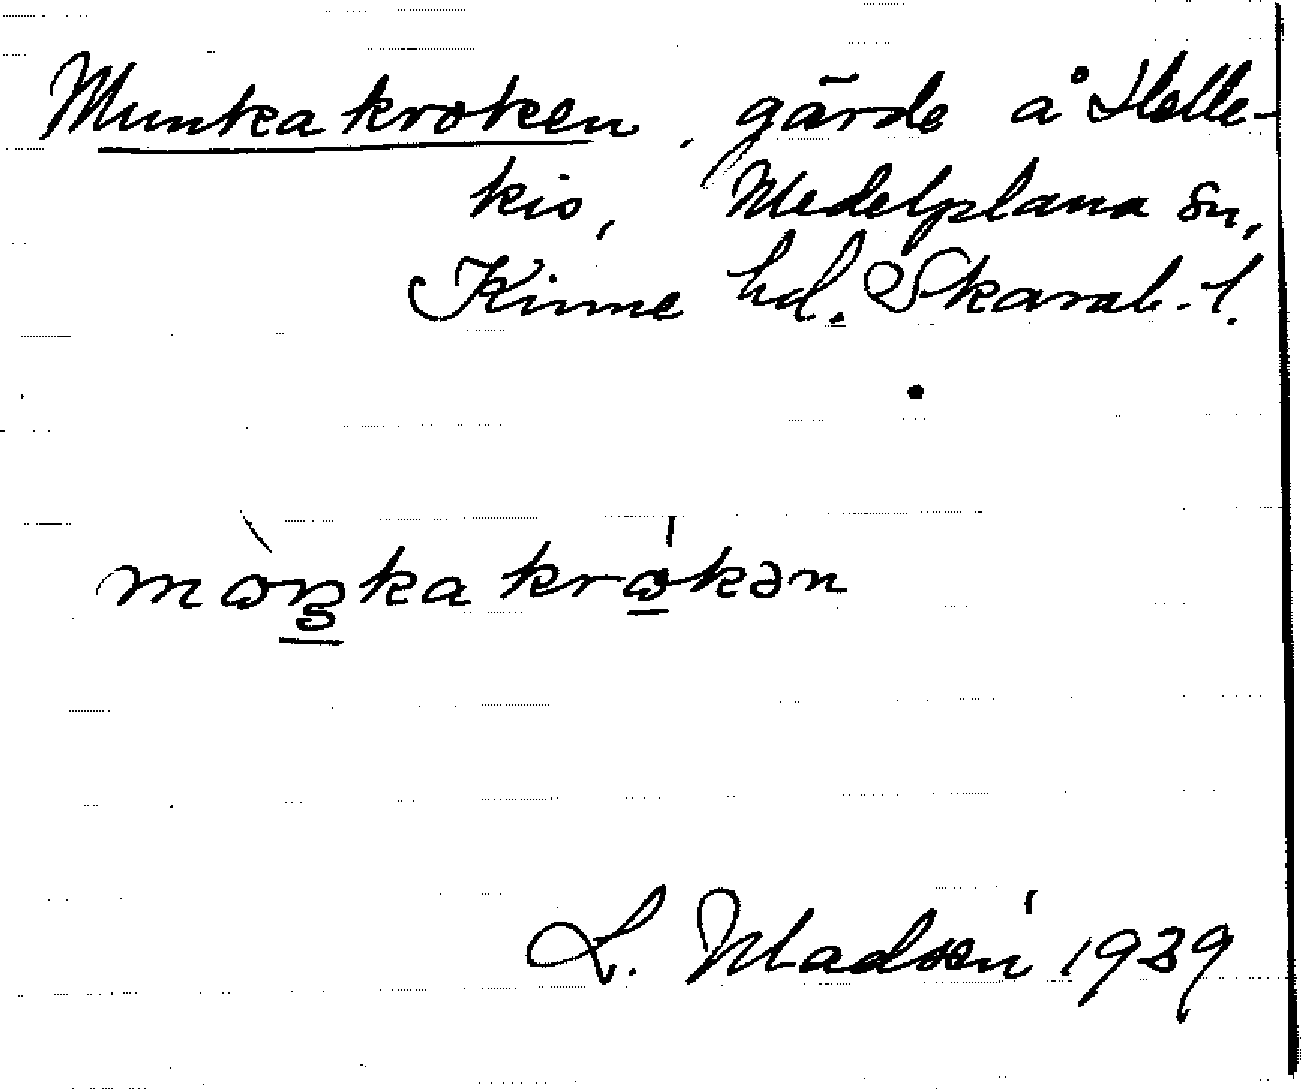 Munkakroken, gärde å Helle-
kis, Medelplana sn,
Kinne hd. Skarab. l.
mɷŋka krɷkən
L. Madsén 1939